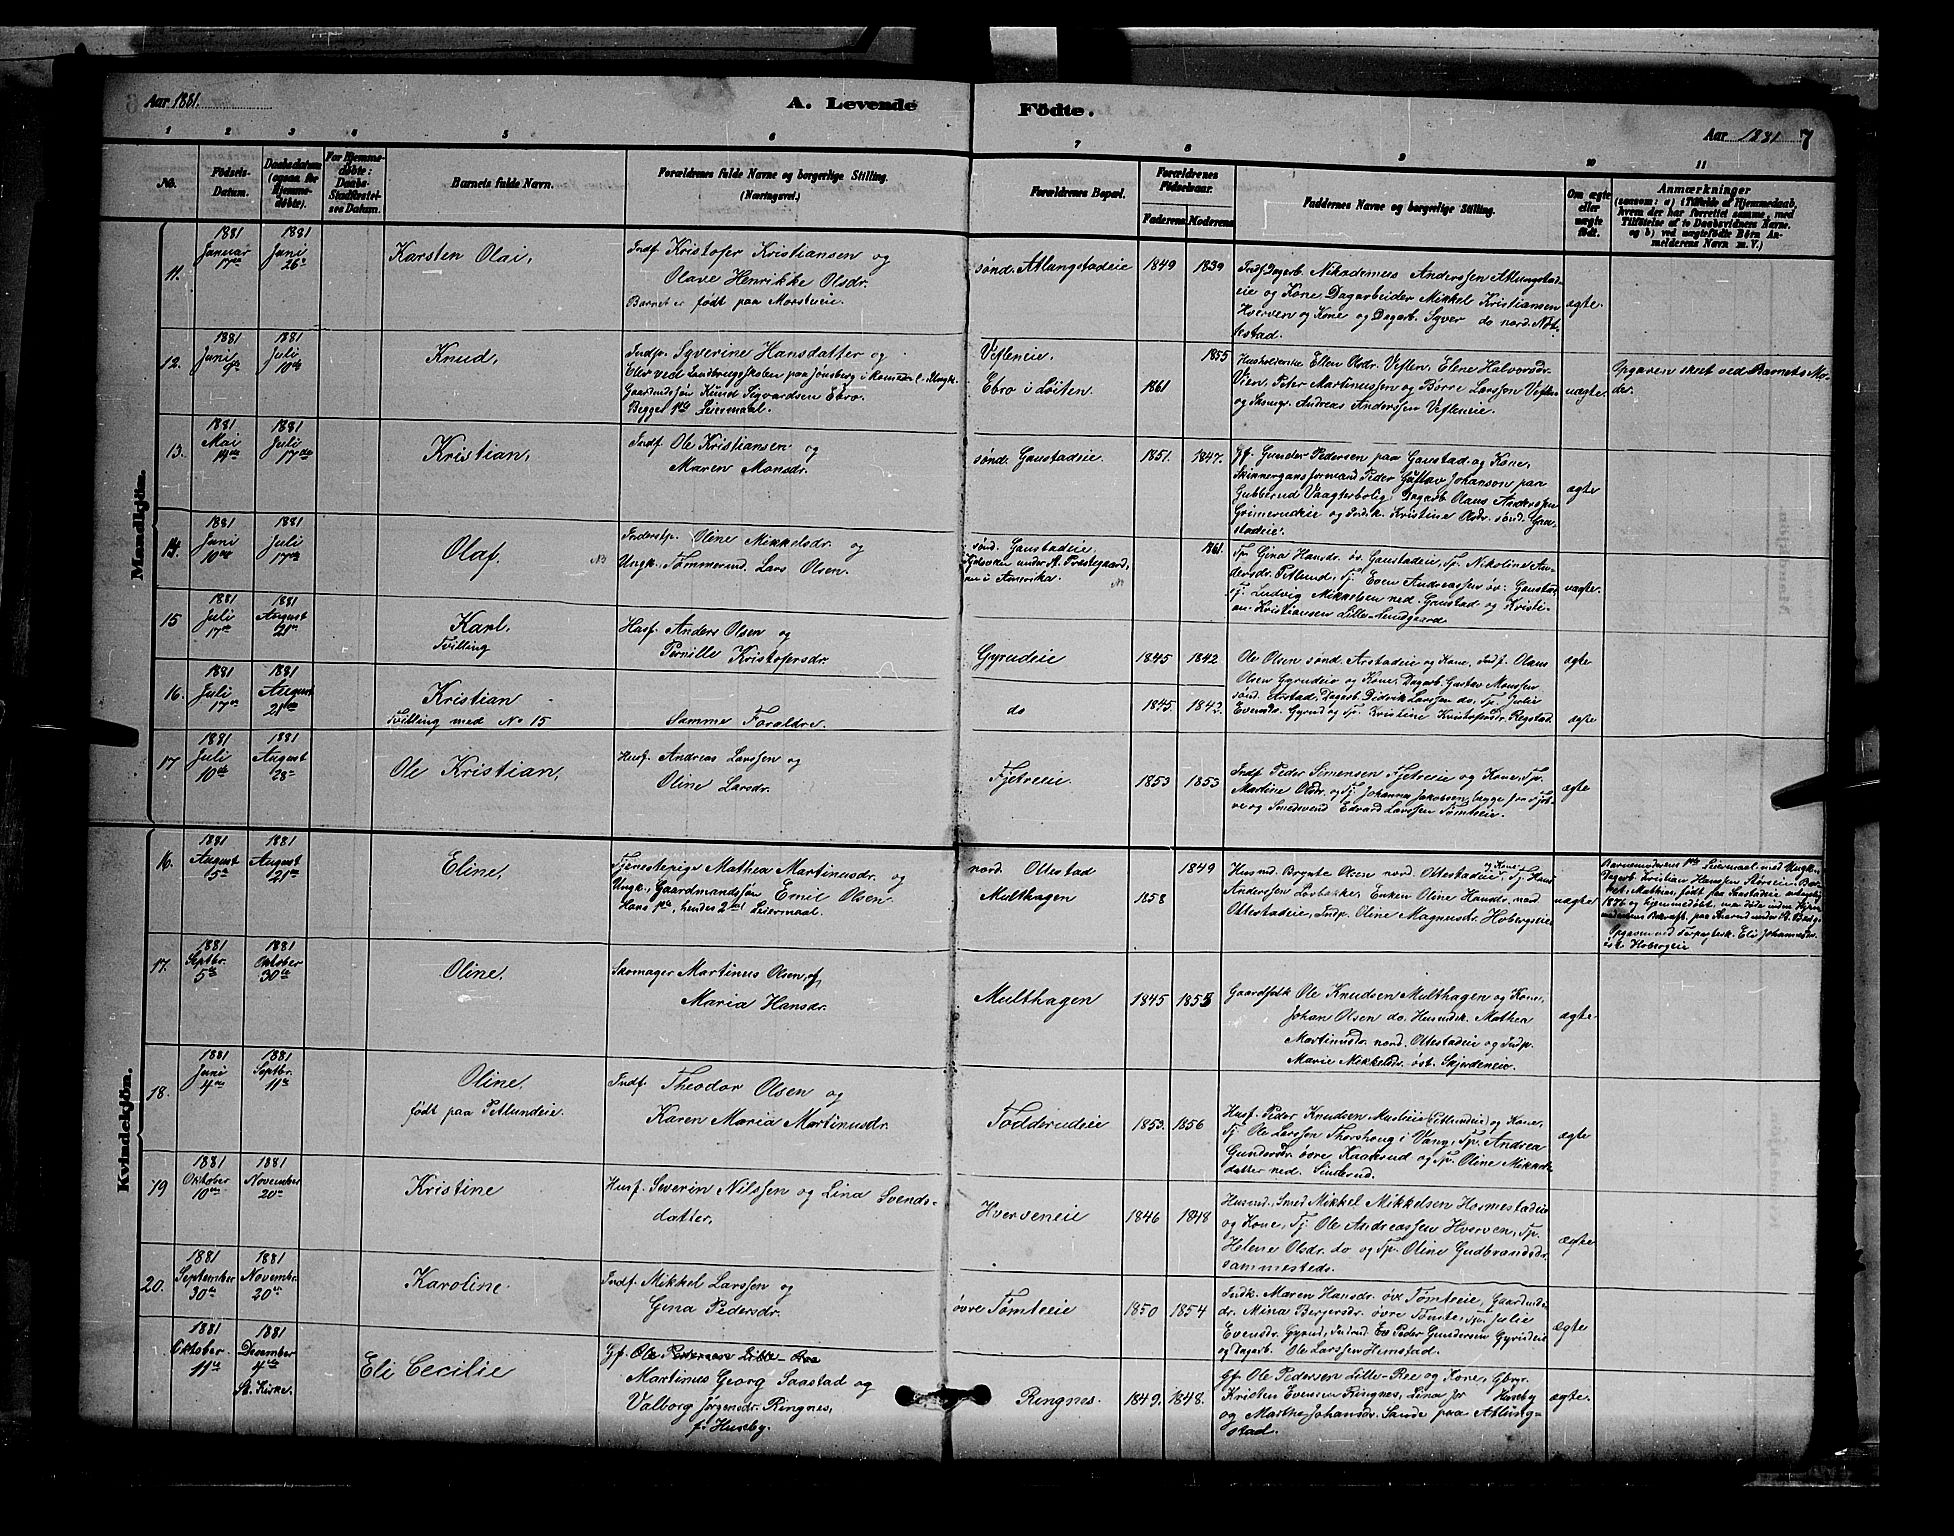 Aar 1881.
A. Levende Födte.
Aar 1881 7
1 2 3 4 5 6 7 8 9 10 11
No.
Födsels-
Datum.
Daabsdatum
(ogsaa for
Hjemme-
döbte).
For Hjemme-
döbte:
Daabs-
Stadfæstel-
ses Datum.
Barnets fulde Navn.
Forældrenes fulde Navne og borgerlige Stilling.
(Næringsvei.)
Forældrenes Bopæl.
Forældrenes
Födselsaar.
Faderens. Moderens
Faddernes Navne og borgerlige Stilling.
Om ægte
eller
uægte
födt.
Anmærkninger
(saasom: a) i Tilfælde af Hjemmedaab,
hvem der har forrettet samme, med
Tilföielse af to Daabsvidners Navne.
og b) ved uægtefödte Börn An-
melderens Navn m. V.)
Mandkjön.
11.
1881
Januar
17de
1881
Juni
26de
Karsten Olai,
Indf. Kristofer Kristiansen og
Olave Henrikke Olsdr.
Barnet er født paa Morsteie.
sønd. Atlungstadeie
1849 1839
Indf Dagarb. Nikodemus Anderssen Atlungstad-
eie og Kone, Dagarbeider Mikkel Kristiansen
Hverven og Kone og Dagarb. Syver do nord. Not-
kestad.
ægte.
12.
1881
Juni
9de
1881
Juli
10de
Knud,
Indp. Syverine Hansdatter og
Elev ved Landbrugsskolen paa Jønsberg i Romedal, Ungk.
Gaardmdsøn Knud Sigvardsen Ebro.
Begges 1ste Leiermaal.
Vefleneie.
Ebro i Løiten.
1861 1855
Husholderske Ellen Olsdr. Veflen, Elene Halvorsdr.
Vien, Peter Martinussen og Børre Larssen Veflen
og Skomgr. Andreas Anderssen Vefleneie.
uægte.
Opgaven skeet ved Barnets Mo-
der.
13.
1881
Mai
14de
1881
Juli
17de
Kristian,
Indf. Ole Kristiansen og
Maren Monsdr.
sønd. Gaustadeie.
1851. 1847.
Gf. Gunder Pedersen paa Gaustad og Kone,
Skinnergangsformand Peder Gustav Johanson paa
Gubberud Vaagterbolig, Dagarb. Olaus Anderssen
Grimerudeie og Indk. Kristine Olsdr. sønd. Gau-
stadeie.
ægte
14.
1881
Juni
10de
1881
Juli
17de
Olaf.
NB
Inderstp. Oline Mikkelsdr. og
Ungk. Tømmermd. Lars Olsen.
sønd. Gaustadeie,
nu i Amerika.
NB
1861.
Tp. Gina Hansdr. øv. Gaustadeie, Tp. Nikoline An-
dersdr. Tetlund, Tj. Even Andreassen øv. Gaustad
Tj. Ludvig Mikkelsen ned. Gaustad og Kristi-
an Kristiansen Lille-
uægte.
15
1881
Juli
17de
1881
August
21de
Karl,
Tvilling
Husf. Anders Olsen og
Pernille Kristofersdr.
Gyrudeie
1845 1842
Ole Olsen sønd. Arstadeie og Kone, Indf. Olaus
Olsen Gyrudeie og Kone, Dagarb. Gustav Monssen
ægte
16.
1881
Juli
17de
1881
August
21de
Kristian
Tvilling med No 15
Samme Forældre.
do
1845. 1842.
sønd. Arstad, Dagarb. Didrik Larssen do, Tp.
Evensdr. Gyrud og Tp. Kristine Kristofersdr. Regstad.
ægte
17
1881
Juli
10de
1881
August
28de
Ole Kristian,
Husf. Andreas Larssen og
Oline Larsdr.
Fjetreeie.
1853 1853
Indf. Peder Simensen Fjetreeie og Kone, Tp.
Martine Olsdr. og Tj. Johannes Jakobsen, begge fra Fjet-
re og Smedsvend Edvard Larssen Tomteeie.
ægte
Kvindekjön.
16.
1881
August
15de
1881
August
21de
Eline,
Tjenestepige Mathea Martinusdr. og
Ungk., Gaardmandssøn Emil Olsen
Hans 1ste, hendes 2det Leiermaal.
nord. Ottestad
Multhagen
1858 1849
Husmd. Brynte Olsen nord. Ottestadeie og Kone, Tj. Hans
Anderssen Lovbakke, Enken Oline Hansdr. nord
Ottestadeie, Indp. Oline Magnusdr. Hobergseie
uægte
Barnemoderens 1ste Leiermaal med Ungk.,
Dagarb. Kristian Hanssen
1876 og hjemmedøbt,
Opgaven ved Eli Johannesdr.
Hobergeie
17.
1881
Septbr.
5te
1881
Oktober
30te
Oline,
Skomager Martinus Olsen og
Maria Hansdr.
Multhagen
1845 1853
Gaardfolk Ole Knudsen Multhagen og Kone,
Johan Olsen do. Husmdsk. Mathea
Martinusdr. nord. Ottestadeie og Indp.
Marie Mikkelsdr. øst. Skjerdeneie.
ægte.
18.
1881
Juni
4de
1881
Septbr.
11te
Oline,
født paa Tetlundeie.
Indf. Theodor Olsen og
Karen Maria Martinusdr.
Todderudeie
1853. 1856
Husf. Peder Knudsen (Tetlundeie) og Kone,
Tj. Ole Larssen Thorshoug i Vang, Tp. Andrea
Gundersdr. øvre Kaaksrud og Tp. Oline Mikkels-
datter ned. Sinderud.
ægte
19
1881
Oktober
10de
1881
November
20de
Kristine
Husf. Severin Nilssen og Lina Svends-
datter,
Hverveneie
1846 1848
Husmd. Smed Mikkel Mikkelsen Hosmestadeie
og Kone, Tj. Ole Andreassen Hverven, Tp.
Helene Olsdr. do og Tp. Oline Gudbrandsdr.
sammesteds.
ægte
20.
1881
September
30te
1881
Novembr.
20de
Karoline.
Indf. Mikkel Larssen og
Gina Pedersdr.
øvre Tomteeie
1850 1854
Indk. Maren Hansdr. øv. Tomteeie, Gaardmds-
dr. Mina Bergersdr. øvre Tomte, Tp. Julie
Evensdr. Gyrud, Indmd. Ex Peder Gundersen Gyrudeie
og Dagarb. Ole Larssen Hemstad.
ægte
1881
Oktober.
11te
1881
December
4de
St. Kirke.
Eli Cecilie
Gf. Ole Pedersen Lille-Ree
Martinus Georg Saastad og
Valborg Jørgensdr. Ringnes,
f. Huseby.
Ringnes.
1849. 1848.
Gf. Ole Pedersen Lille-Ree og Kone, Gbrgr.
Kristen Evensen Ringnes, Lina Jør Huseby
og Marthe Johansdr. Sande paa Atlung-
stad.
ægte.